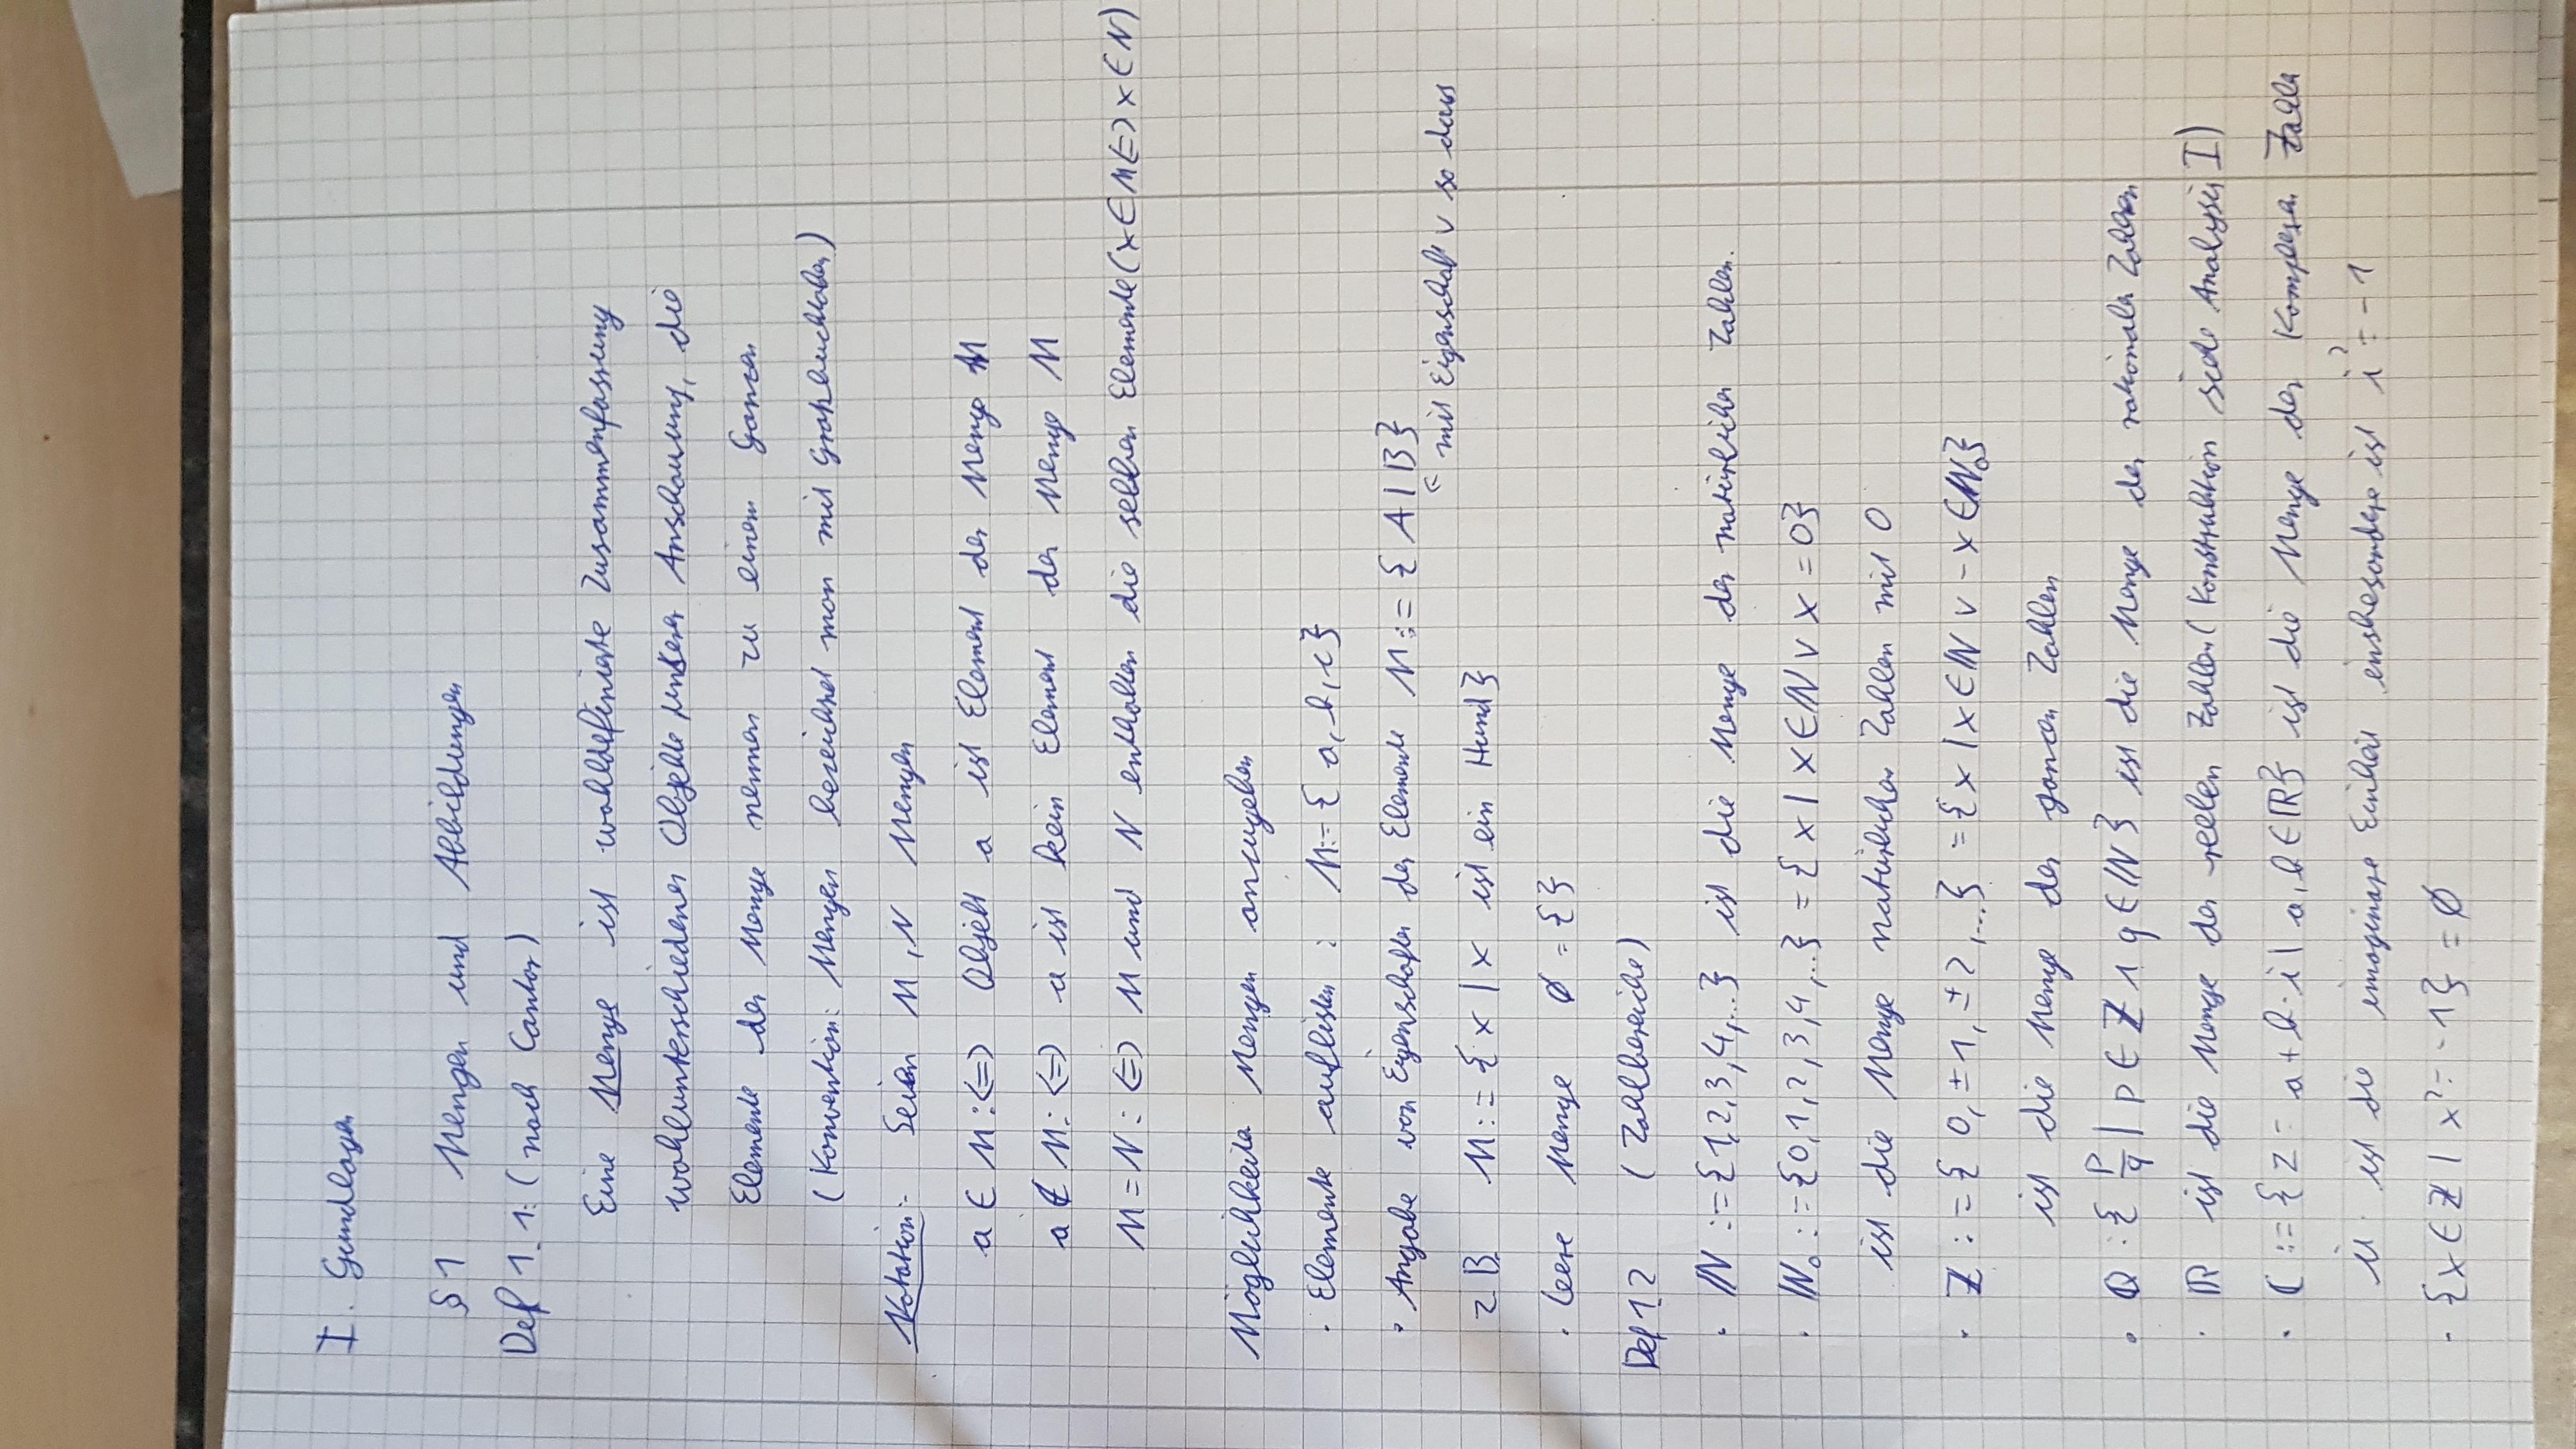 I. Grundlagen
§1 Mengen und Abbildungen
Def 1.1: (nach Cantor)
Eine Menge ist wohldefinierte Zusammenfassung
wohlunterschiedener Objekte unserer Anschauung, die
Elemente der Menge nennen zu einem Ganzen
(Konvention: Mengen bezeichnet man mit Großbuchstaben)
Notation: Seien M, N Mengen
a ∈ M :⇔ Objekt a ist Element der Menge M
a ∉ M :⇔ a ist kein Element der Menge M
M = N :⇔ M und N enthalten die selben Elemente (x ∈ M ⇔ x ∈ N)
Möglichkeiten Mengen anzugeben
· Elemente auflisten : M := { a, b, c }
· Angabe von Eigenschaften der Elemente M := { A | B }
mit Eigenschaft v so dass
z B. M := { x | x ist ein Hund }
· leere Menge ∅ = { }
Def 1.2 (Zahlbereiche)
· ℕ := {1, 2, 3, 4, ...} ist die Menge der natürlichen Zahlen.
· ℕ₀ := {0, 1, 2, 3, 4, ...} = { x | x ∈ ℕ ∨ x = 0 }
ist die Menge natürlicher Zahlen mit 0
· ℤ := { 0, ±1, ±2, ... } = { x | x ∈ ℕ ∨ -x ∈ ℕ₀ }
ist die Menge der ganzen Zahlen
· ℚ : { p/q | p ∈ ℤ ∧ q ∈ ℕ } ist die Menge der rationalen Zahlen
· ℝ ist die Menge der reellen Zahlen (Konstruktion siehe Analysis I)
· ℂ := { z = a + b · i | a, b ∈ ℝ } ist die Menge der Komplexen Zahlen
ist die imaginäre Einheit insbesondere ist i² = -1
- { x ∈ ℤ | x² = -1 } = ∅